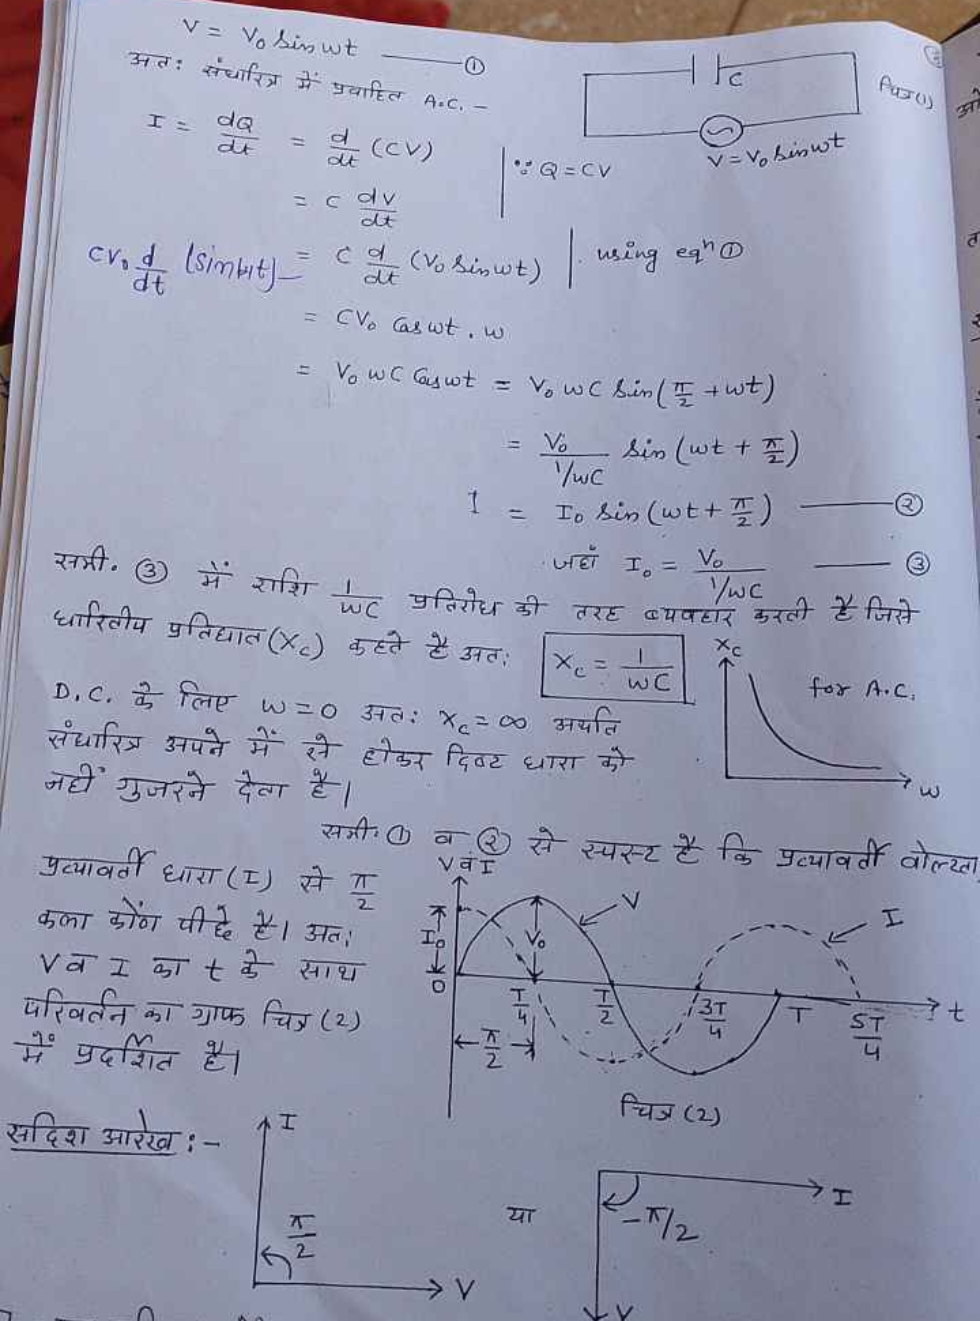 V = V₀ sin wt ——— ①
अतः संधारित्र में प्रवाहित A.C. –
C
चित्र(1)
V = V₀ sin wt
I = dQ/dt = d/dt (CV) | ∵ Q = CV
= C dv/dt
CV₀ d/dt (sin wt) – = C d/dt (V₀ sin wt) | using eqⁿ ①
= CV₀ Cos wt . w
= V₀ wC Cos wt = V₀ wC sin(π/2 + wt)
= V₀/(1/wC) sin (wt + π/2)
I = I₀ sin (wt + π/2) ——— ②
जहाँ I₀ = V₀/(1/wC) ——— ③
समी. ③ में राशि 1/wC प्रतिरोध की तरह व्यवहार करती है जिसे
धारितीय प्रतिघात (Xc) कहते है अतः Xc = 1/wC
Xc
for A.C.
w
D.C. के लिए w = 0 अतः Xc = ∞ अर्थात
संधारित्र अपने में से होकर दिष्ट धारा को
नहीं गुजरने देता है।
समी. ① व ② से स्पस्ट है कि प्रत्यावर्ती वोल्टता
प्रत्यावर्ती धारा (I) से π/2
कला कोंण पीछे है। अतः
V व I का t के साथ
परिवर्तन का ग्राफ चित्र (2)
में प्रदर्शित है।
V वं I
V
I
I₀
V₀
0
T/4
T/2
3T/4
T
5T/4
t
π/2
चित्र (2)
सदिश आरेख :–
I
π/2
V
या
I
–π/2
V